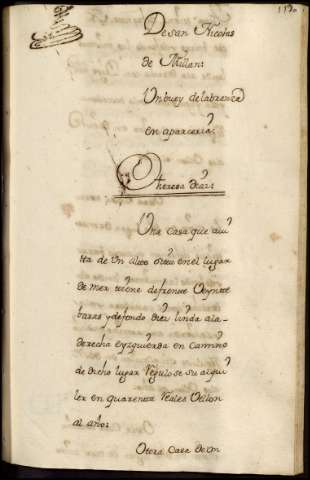 De san Nicolas
de Millan:
Un buey de labranza
en aparceria:
Theresa Diaz:
Una casa que avi
ta de un alto sittа en el lugar
de mex tiene de frente Veynte
baras y de fondo diez linda a la
derecha e yzquierda con Camino
de dicho lugar regulose su alqui
ler en quarenta Reales Vellon
al año:
Otra Casa de un